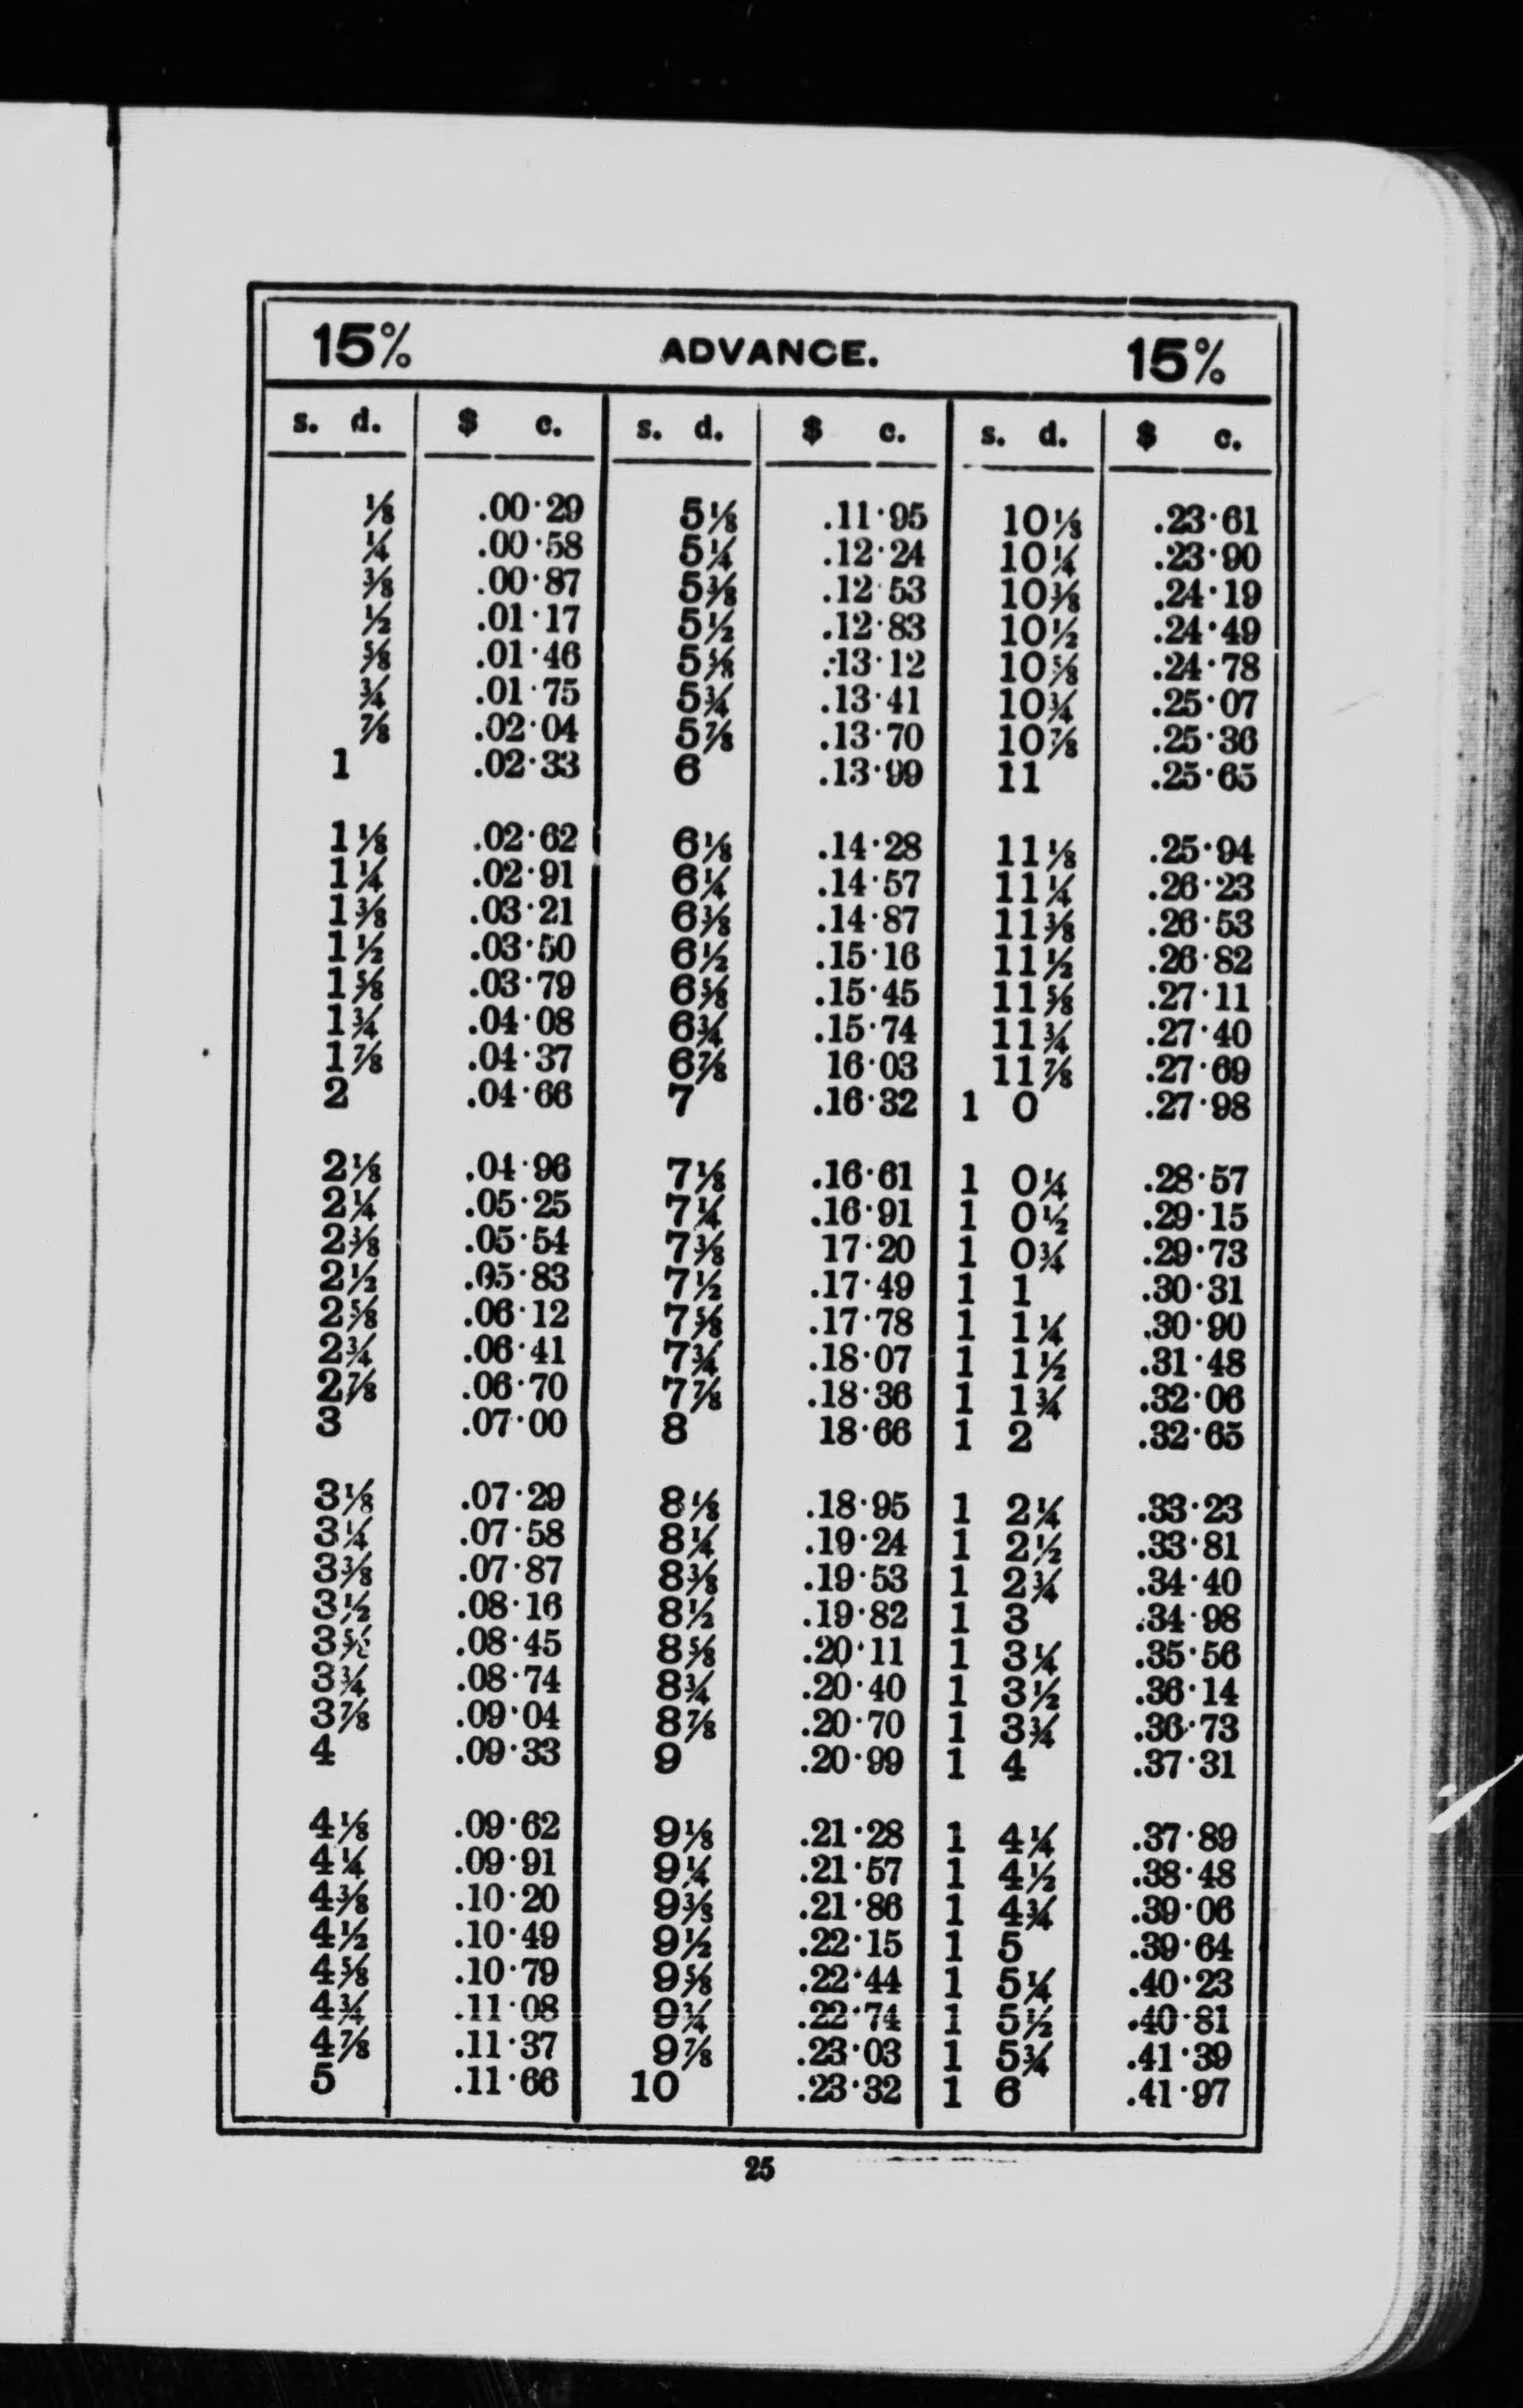 15% ADVANCE. 15%
s. d. $ c. s. d. $ c. s. d. $ c.
⅛ .00·29 5⅛ .11·95 10⅛ .23·61
¼ .00·58 5¼ .12·24 10¼ .23·90
⅜ .00·87 5⅜ .12·53 10⅜ .24·19
½ .01·17 5½ .12·83 10½ .24·49
⅝ .01·46 5⅝ .13·12 10⅝ .24·78
¾ .01·75 5¾ .13·41 10¾ .25·07
⅞ .02·04 5⅞ .13·70 10⅞ .25·36
1 .02·33 6 .13·99 11 .25·65
1⅛ .02·62 6⅛ .14·28 11⅛ .25·94
1¼ .02·91 6¼ .14·57 11¼ .26·23
1⅜ .03·21 6⅜ .14·87 11⅜ .26·53
1½ .03·50 6½ .15·16 11½ .26·82
1⅝ .03·79 6⅝ .15·45 11⅝ .27·11
1¾ .04·08 6¾ .15·74 11¾ .27·40
1⅞ .04·37 6⅞ 16·03 11⅞ .27·69
2 .04·66 7 .16·32 1 0 .27·98
2⅛ .04·96 7⅛ .16·61 1 0¼ .28·57
2¼ .05·25 7¼ .16·91 1 0½ .29·15
2⅜ .05·54 7⅜ 17·20 1 0¾ .29·73
2½ .05·83 7½ .17·49 1 1 .30·31
2⅝ .06·12 7⅝ .17·78 1 1¼ .30·90
2¾ .06·41 7¾ .18·07 1 1½ .31·48
2⅞ .06·70 7⅞ .18·36 1 1¾ .32·06
3 .07·00 8 18·66 1 2 .32·65
3⅛ .07·29 8⅛ .18·95 1 2¼ .33·23
3¼ .07·58 8¼ .19·24 1 2½ .33·81
3⅜ .07·87 8⅜ .19·53 1 2¾ .34·40
3½ .08·16 8½ .19·82 1 3 .34·98
3⅝ .08·45 8⅝ .20·11 1 3¼ .35·56
3¾ .08·74 8¾ .20·40 1 3½ .36·14
3⅞ .09·04 8⅞ .20·70 1 3¾ .36·73
4 .09·33 9 .20·99 1 4 .37·31
4⅛ .09·62 9⅛ .21·28 1 4¼ .37·89
4¼ .09·91 9¼ .21·57 1 4½ .38·48
4⅜ .10·20 9⅜ .21·86 1 4¾ .39·06
4½ .10·49 9½ .22·15 1 5 .39·64
4⅝ .10·79 9⅝ .22·44 1 5¼ .40·23
4¾ .11·08 9¾ .22·74 1 5½ .40·81
4⅞ .11·37 9⅞ .23·03 1 5¾ .41·39
5 .11·66 10 .23·32 1 6 .41·97
25